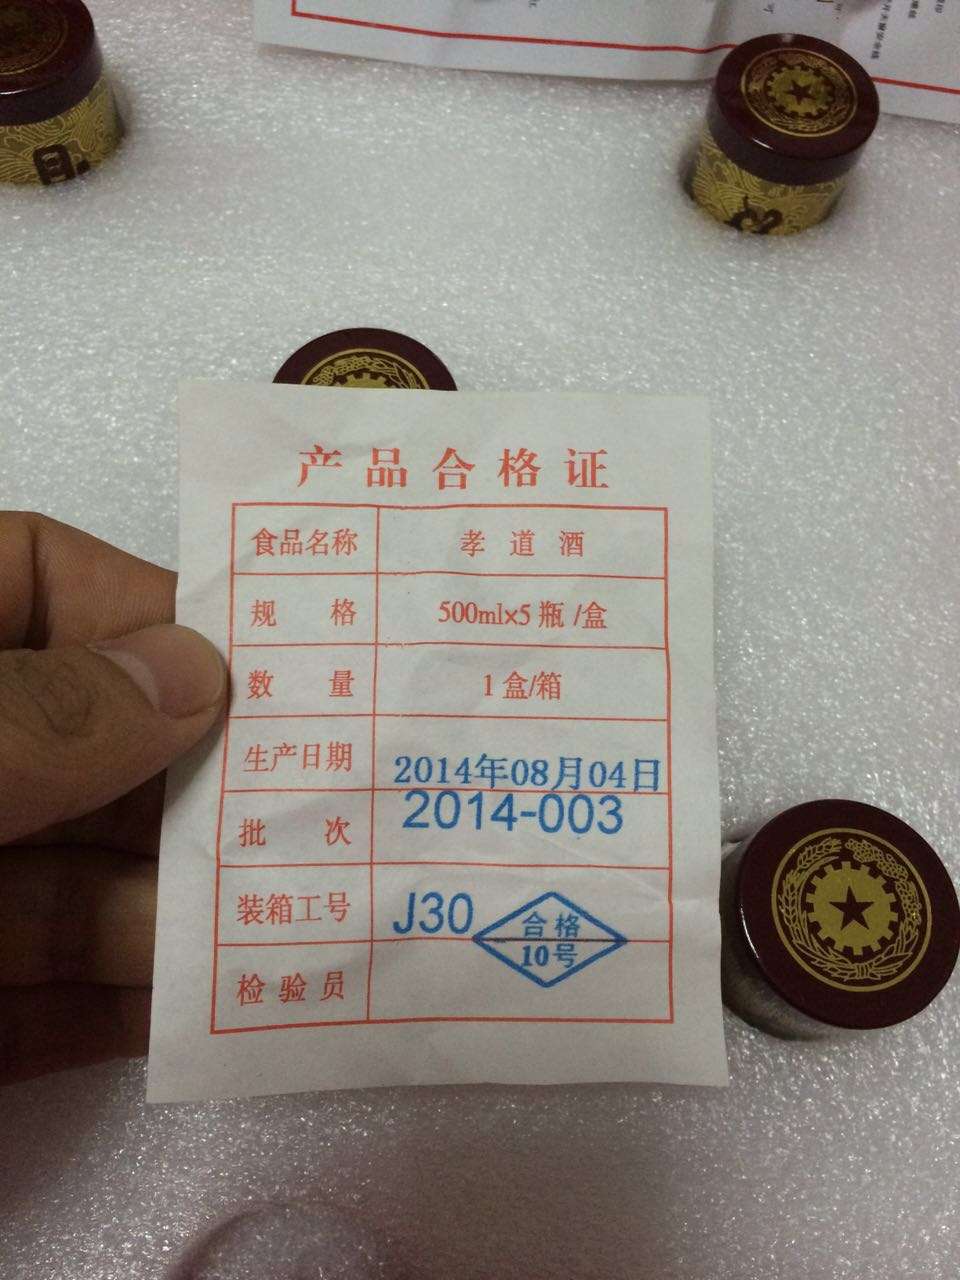 产品合格证
食品名称 孝道酒
规格 500ml×5瓶/盒
数量 1盒/箱
生产日期 2014年08月04日
批次 2014-003
装箱工号 J30
合格
10号
检验员